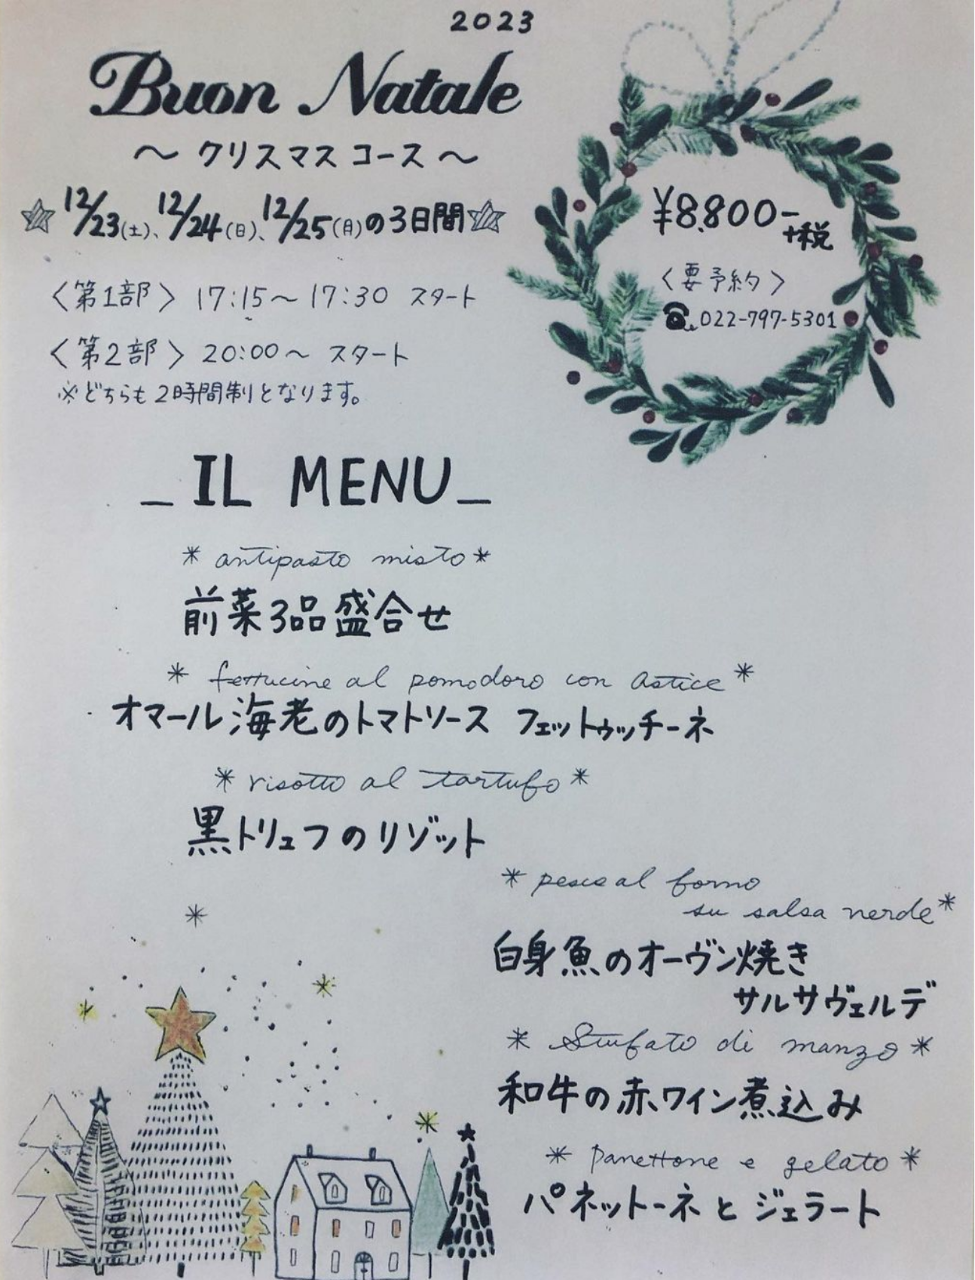 2023
Buon Natale
～ クリスマス コース ～
☆12/23(土)、12/24(日)、12/25(月)の3日間☆
〈第1部〉 17:15～17:30 スタート
〈第2部〉 20:00～ スタート
※どちらも2時間制となります。
¥8,800-
+税
〈要予約〉
☎022-797-5301
_ IL MENU _
* antipasto misto *
前菜3品盛合せ
* fettucine al pomodoro con astice *
オマール海老のトマトソース フェットゥッチーネ
* risotto al tartufo *
黒トリュフのリゾット
* pesce al forno
su salsa verde *
白身魚のオーヴン焼き
サルサヴェルデ
* Stufato di manzo *
和牛の赤ワイン煮込み
* Panettone e gelato *
パネットーネ と ジェラート